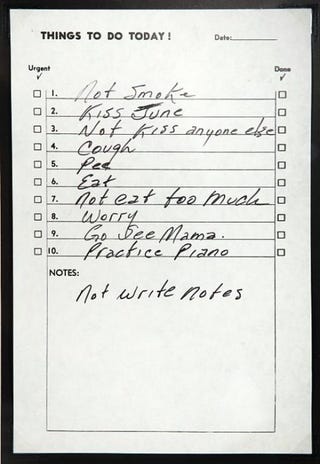 THINGS TO DO TODAY!
Date:
Urgent Done
1. Not Smoke
2. Kiss June
3. Not Kiss anyone else
4. Cough
5. Pee
6. Eat
7. Not eat too much
8. Worry
9. Go See Mama.
10. Practice Piano
NOTES:
Not write notes